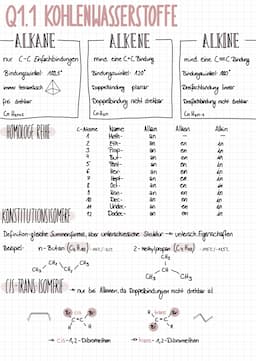 Q1.1 KOHLENWASSERSTOFFE
ALKANE
nur C-C Einfachbindungen
Bindungswinkel 109,5°
immer tetraedrisch
frei drehbar
CnH2n+2
ALKENE
mind. eine C=C Bindung
Bindungswinkel 120°
Doppelbindung planar
Doppelbindung nicht drehbar
CnH2n
ALKINE
mind. eine C≡C Bindung
Bindungswinkel 180°
Dreifachbindung linear
Dreifachbindung nicht drehbar
CnH2n-2
HOMOLOGE REIHE
C-Atome Name Alkan Alken Alkin
1 Meth- an - -
2 Eth- an en in
3 Prop- an en in
4 But- an en in
5 Pent- an en in
6 Hex- an en in
7 Hept- an en in
8 Oct- an en in
9 Non- an en in
10 Dec- an en in
11 Undec- an en in
12 Dodec- an en in
KONSTITUTIONSISOMERE
Definition: gleiche Summenformel, aber unterschiedliche Struktur → untersch. Eigenschaften
Beispiel: n-Butan (C4H10) 2-Methylpropan (C4H10)
CH3 CH2 CH2 CH3
CH3 CH CH3
CH3
CIS-TRANS-ISOMERIE → nur bei Alkenen, da Doppelbindungen nicht drehbar ist
Br cis Br
C=C
H H
Br trans H
C=C
H Br
→ cis-1,2-Dibromethen → trans-1,2-Dibromethen